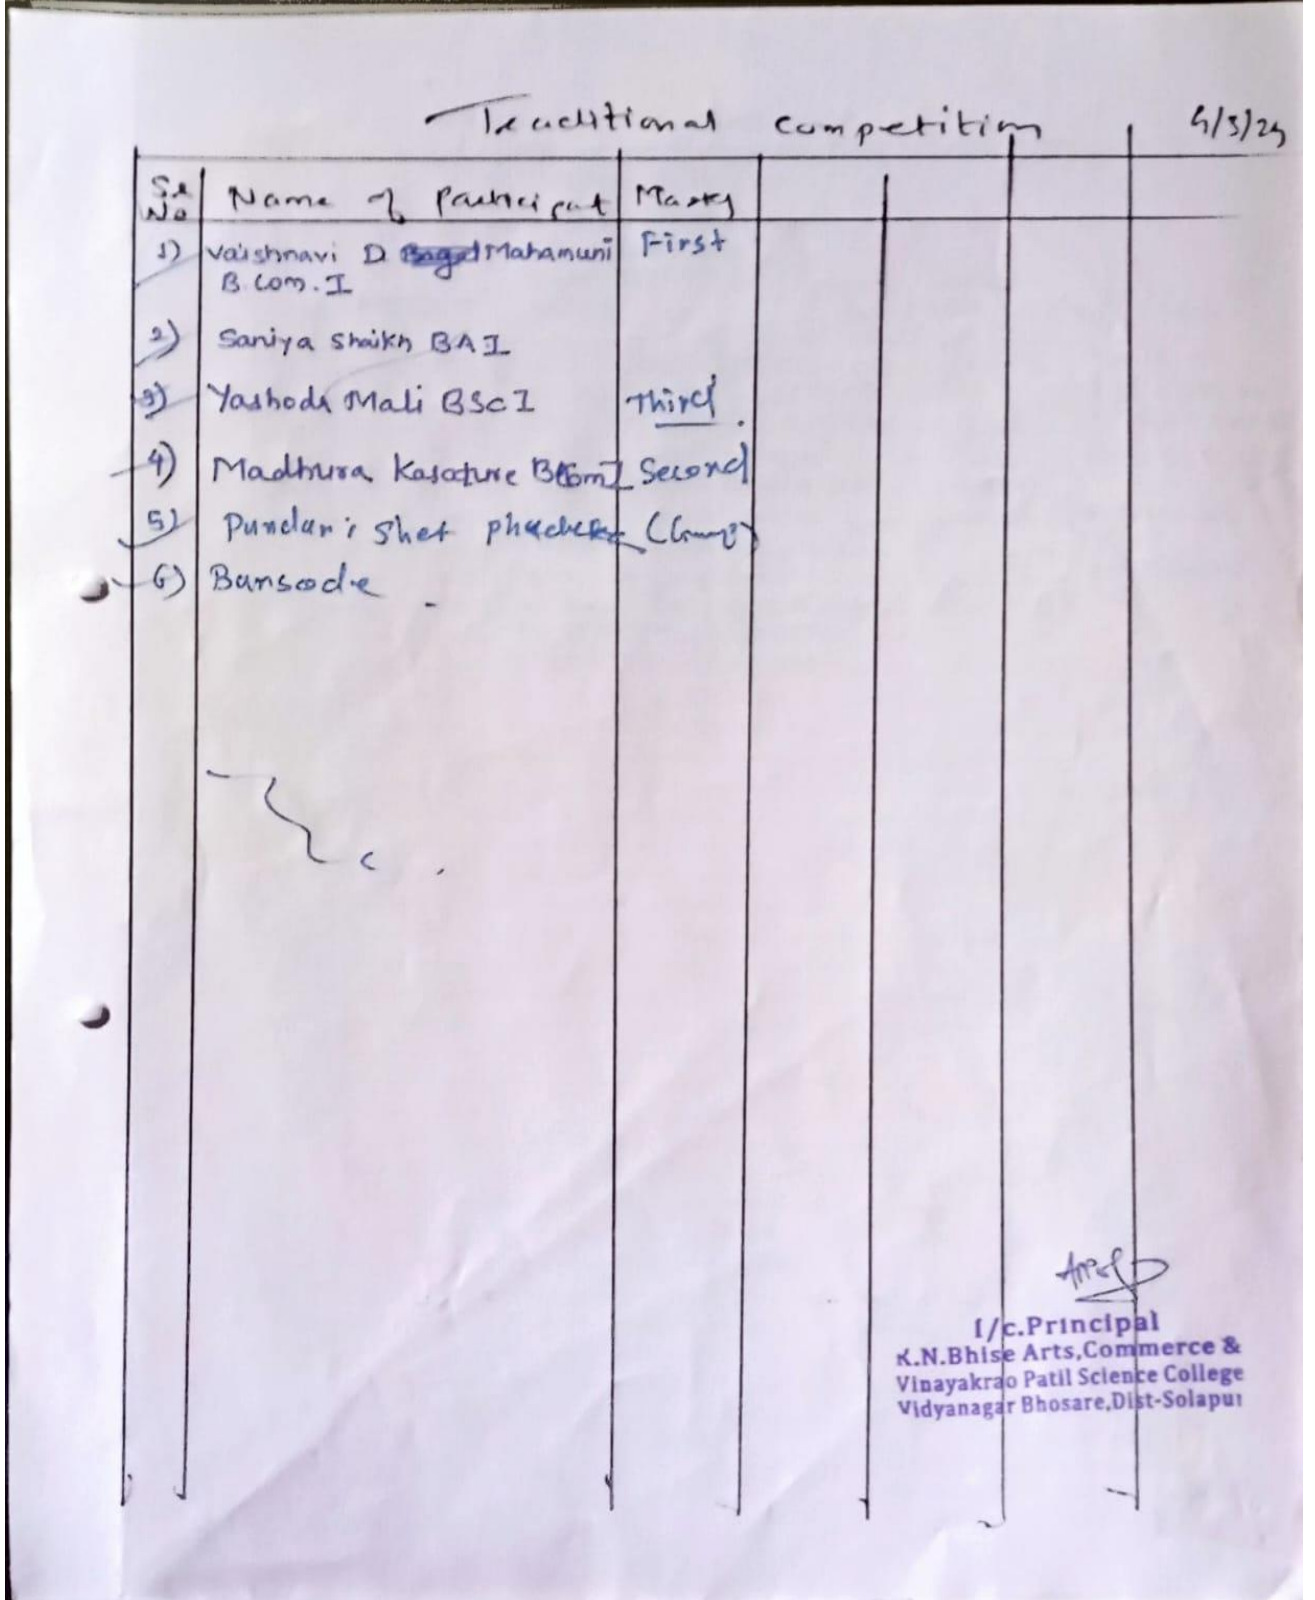 Traditional competition 4/3/24
Sr No Name of Participant Marks
1) Vaishnavi D. Mahamuni First
B.Com.I
2) Saniya Shaikh BAI
3) Yashoda Mali BScI Third
4) Madhura Kasature BComI Second
5) Pundari Shet
6) Bansode
I/c.Principal
K.N.Bhise Arts,Commerce &
Vinayakrao Patil Science College
Vidyanagar Bhosare,Dist-Solapur